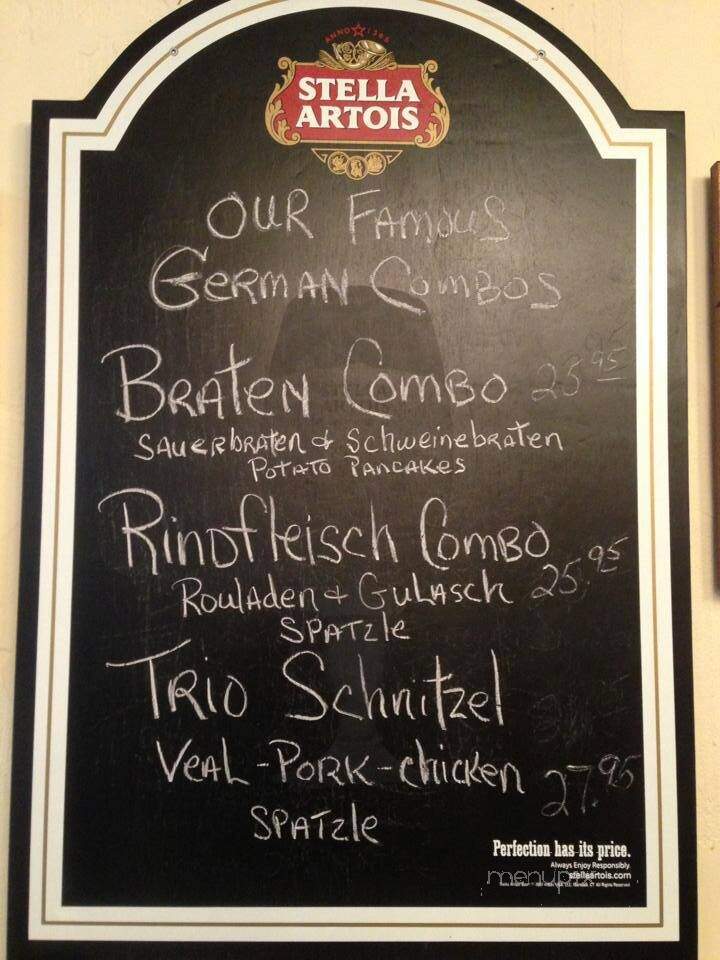 ANNO 1366
STELLA
ARTOIS
OUR FAMOUS
GERMAN COMBOS
BRATEN COMBO 25.95
SAUERBRATEN & SchweinebRATEN
POTATO PANCAKES
Rindfleisch COMBO
25.95
ROULADEN + GULASCH
SPATZLE
TRIO Schnitzel
VEAL - PORK - chicken 27.95
SPATZLE
Perfection has its price.
Always Enjoy Responsibly.
stellaartois.com
menupix